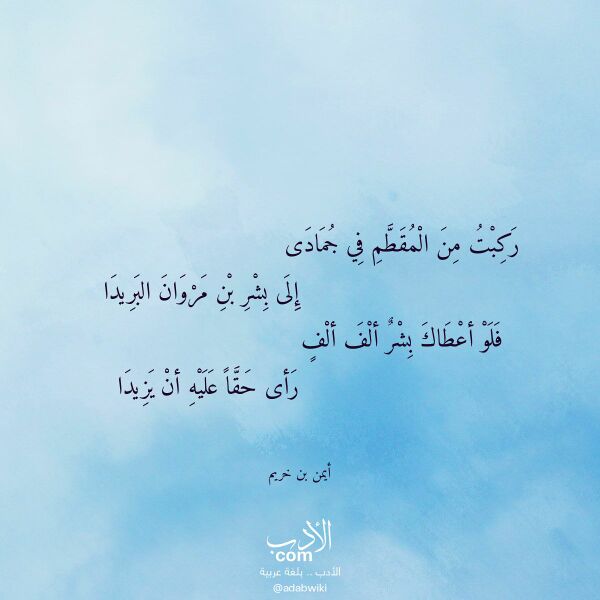 رَكِبْتُ مِنَ الْمُقَطَّمِ فِي جُمَادَى
إِلَى بِشْرِ بْنِ مَرْوَانَ البَرِيدَا
فَلَوْ أعْطَاكَ بِشْرٌ ألْفَ ألْفٍ
رَأى حَقَّاً عَلَيْهِ أنْ يَزِيدَا
أيمن بن خريم
الأدب
com
الأدب .. بلغة عربية
@adabwiki